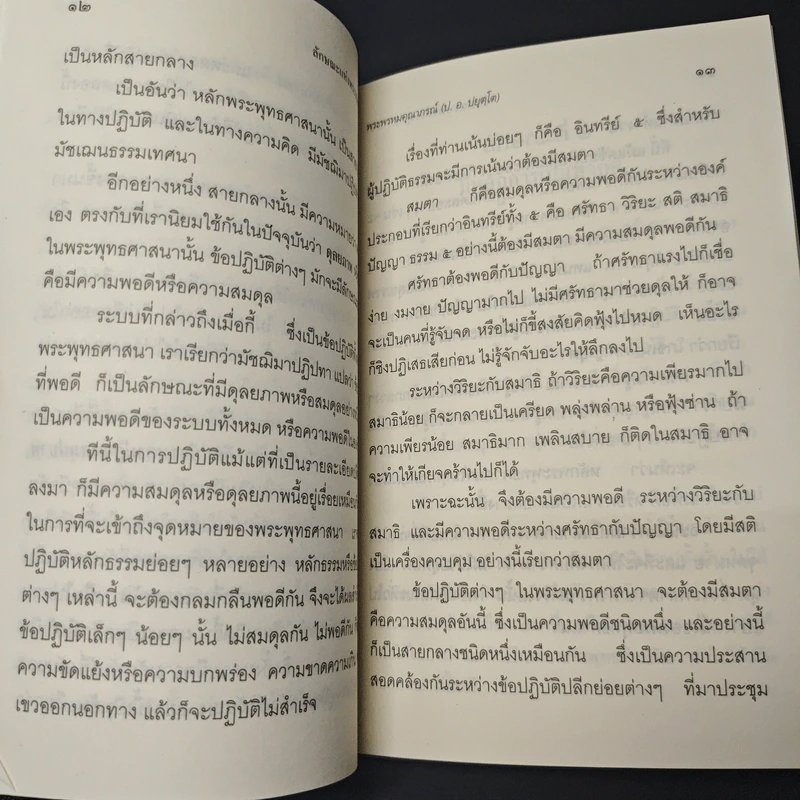 ๑๒
ลักษณะแห่ง
เป็นหลักสายกลาง
เป็นอันว่า หลักพระพุทธศาสนานั้น
ในทางปฏิบัติ และในทางความคิด มีมัชฌิมาปฏิ
มัชเฌนธรรมเทศนา
อีกอย่างหนึ่ง สายกลางนั้น มีความหมาย
เอง ตรงกับที่เรานิยมใช้กันในปัจจุบันว่า ดุลยภาพ
ในพระพุทธศาสนานั้น ข้อปฏิบัติต่างๆ มักจะมีลักษณะ
คือมีความพอดีหรือความสมดุล
ระบบที่กล่าวถึงเมื่อกี้ ซึ่งเป็นข้อปฏิบัติ
พระพุทธศาสนา เราเรียกว่ามัชฌิมาปฏิปทา แปลว่า
ที่พอดี ก็เป็นลักษณะที่มีดุลยภาพหรือสมดุลอย่าง
เป็นความพอดีของระบบทั้งหมด หรือความพอดีใน
ทีนี้ในการปฏิบัติแม้แต่ที่เป็นรายละเอียด
ลงมา ก็มีความสมดุลหรือดุลยภาพนี้อยู่เรื่อยเหมือน
ในการที่จะเข้าถึงจุดหมายของพระพุทธศาสนา
ปฏิบัติหลักธรรมย่อยๆ หลายอย่าง หลักธรรมหรือข้อ
ต่างๆ เหล่านี้ จะต้องกลมกลืนพอดีกัน จึงจะได้ผล
ข้อปฏิบัติเล็กๆ น้อยๆ นั้น ไม่สมดุลกัน ไม่พอดีกัน
ความขัดแย้งหรือความบกพร่อง ความขาดความเกิน
เขวออกนอกทาง แล้วก็จะปฏิบัติไม่สำเร็จ
๑๓
พระพรหมคุณาภรณ์ (ป. อ. ปยุตฺโต)
เรื่องที่ท่านเน้นบ่อยๆ ก็คือ อินทรีย์ ๕ ซึ่งสำหรับ
ผู้ปฏิบัติธรรมจะมีการเน้นว่าต้องมีสมตา
สมตา ก็คือสมดุลหรือความพอดีกันระหว่างองค์
ประกอบที่เรียกว่าอินทรีย์ทั้ง ๕ คือ ศรัทธา วิริยะ สติ สมาธิ
ปัญญา ธรรม ๕ อย่างนี้ต้องมีสมตา มีความสมดุลพอดีกัน
ศรัทธาต้องพอดีกับปัญญา ถ้าศรัทธาแรงไปก็เชื่อ
ง่าย งมงาย ปัญญามากไป ไม่มีศรัทธามาช่วยดุลให้ ก็อาจ
จะเป็นคนที่รู้จับจด หรือไม่ก็ขี้สงสัยคิดฟุ้งไปหมด เห็นอะไร
ก็ชิงปฏิเสธเสียก่อน ไม่รู้จักจับอะไรให้ลึกลงไป
ระหว่างวิริยะกับสมาธิ ถ้าวิริยะคือความเพียรมากไป
สมาธิน้อย ก็จะกลายเป็นเครียด พลุ่งพล่าน หรือฟุ้งซ่าน ถ้า
ความเพียรน้อย สมาธิมาก เพลินสบาย ก็ติดในสมาธิ อาจ
จะทำให้เกียจคร้านไปก็ได้
เพราะฉะนั้น จึงต้องมีความพอดี ระหว่างวิริยะกับ
สมาธิ และมีความพอดีระหว่างศรัทธากับปัญญา โดยมีสติ
เป็นเครื่องควบคุม อย่างนี้เรียกว่าสมตา
ข้อปฏิบัติต่างๆ ในพระพุทธศาสนา จะต้องมีสมตา
คือความสมดุลอันนี้ ซึ่งเป็นความพอดีชนิดหนึ่ง และอย่างนี้
ก็เป็นสายกลางชนิดหนึ่งเหมือนกัน ซึ่งเป็นความประสาน
สอดคล้องกันระหว่างข้อปฏิบัติปลีกย่อยต่างๆ ที่มาประชุม